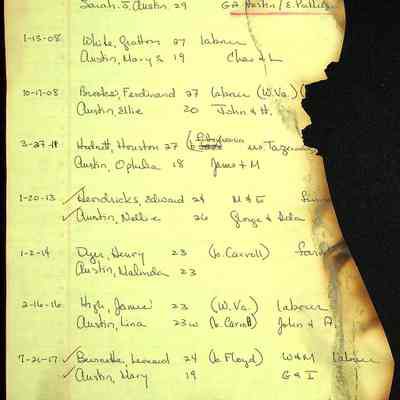 Sarah J. Austin 29 G & Austin / E.
1-13-08 White, Gratton 27 labour
Austin, Mary S 19 Chas & L
10-17-08 Brooks, Ferdinand 27 labour (W.Va.)
Austin, Ellie 20 John & H.
3-27-11 Houston 27 res. Tazewell
Austin, Ophelia 18 James & M
1-20-13 Hendricks, Edward 24 M & E
Austin, Nellie 26 George & Ada
1-2-14 Dye, Henry 23 (b. Carroll) farm
Austin, Malinda 23
2-16-16 High, James 23 (W.Va.) labour
Austin, Lina 23 w (b. Carroll) John & A.
7-21-17 Burnette, Leonard 24 (b. Floyd) W & M labour
Austin, Mary 19 G & I